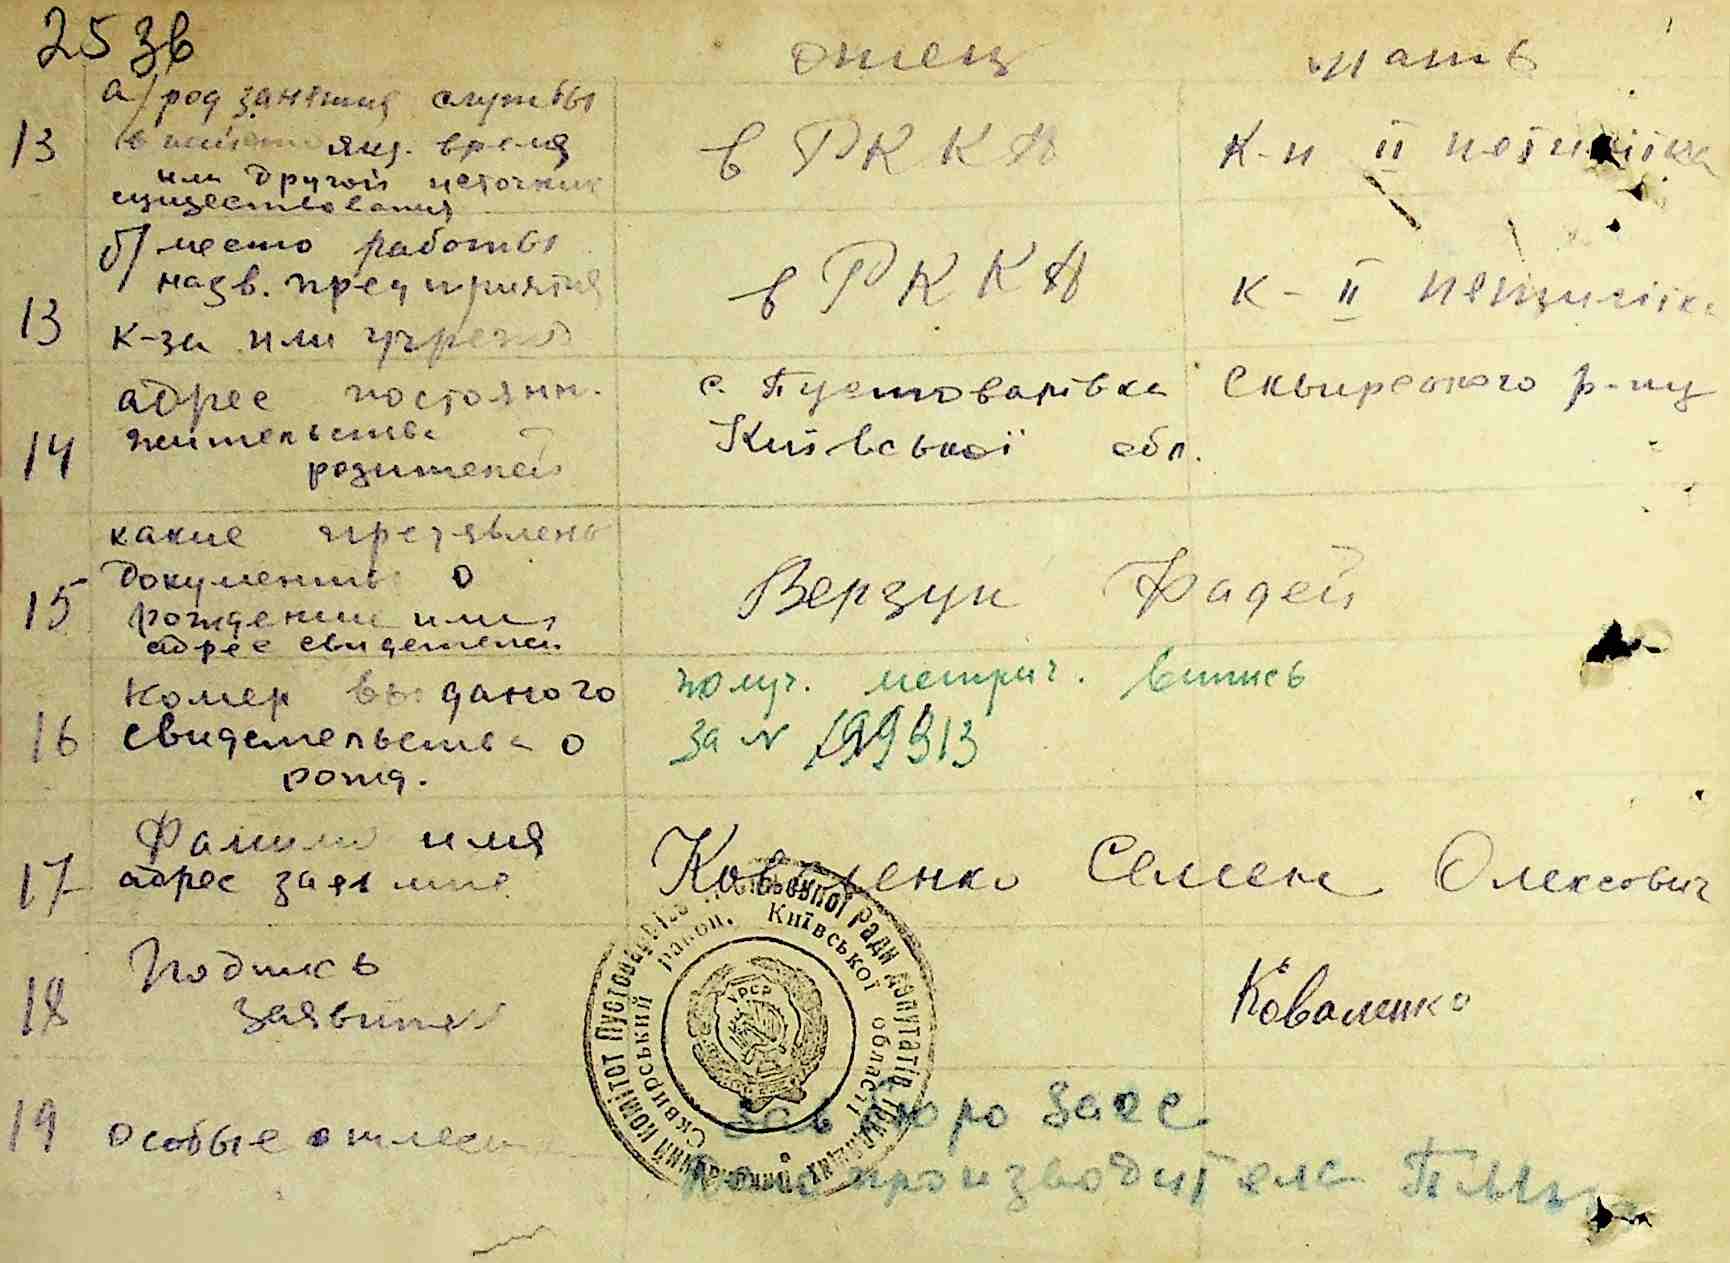 25 зв
отец мать
13 а/ род занятия службы
в настоящ. время
или другой источник
существования
в РККА
к-п II петилітка
13 б/ место работы
назв. предприятия
к-за или учрежд
в РККА
к- II петилітка
14 адрес постоянн.
жительства
родителей
с. Пустоварівка Сквирского р-ну
Київської обл.
15 какие предявлены
документы о
рождении или
адрес свидетелей
Верзун Фадей
16 Номер выданого
свидетельства о
рожд.
получ. метрич. витись
за №
17 Фамили имя
адрес заяв
Коваленко Семен Олексович
18 Подпись
заявителя
Коваленко
19 особые отмет
Виконавчий комітет Пустоварівської сільської Ради депутатів трудящих
Сквирський район. Київської області
УРСР
Зав бюро Загс
Делопроизводитель